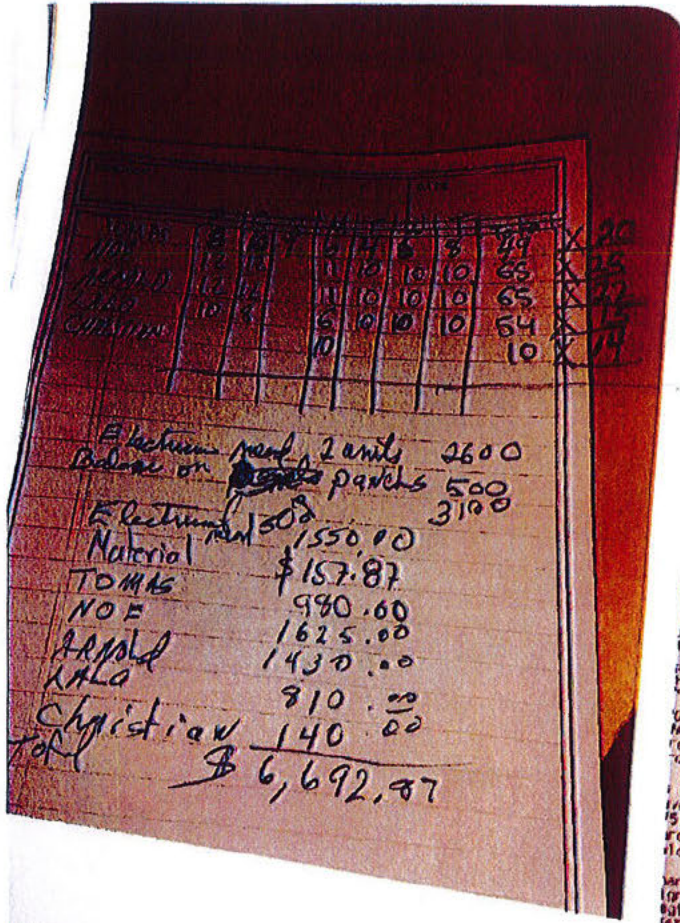 TOMAS 8 10 7 6 4 6 8 49 X 20
NOE 12 12 11 10 10 10 65 X 25
ARNALD 12 12 11 10 10 10 65 X 22
LALO 10 8 6 10 10 10 54 X 15
CHRISTIAN 10 10 X 14
2 units 2600
Balance on panels 500
3100
50% 1550.00
Material $157.87
TOMAS 980.00
NOE 1625.00
ARNALD 1430.00
LALO 810.00
Christian 140.00
Total $6,692.87